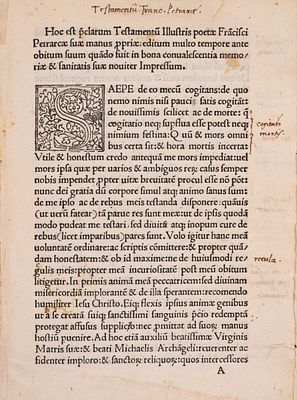 Testamentū Franc. Petrarcę
Hoc est p̄clarum Testamentū Illustris poetæ Frācisci
Petrarcæ suæ manus p̄priæ: editum multo tempore ante
obitum suum quādo fuit in bona conualescentia memo/
riæ & sanitatis suæ nouiter Impressum.
SAEPE de eo mecū cogitans: de quo
nemo nimis nisi pauci satis cogitāt
de nouissimis scilicet ac de morte: q̄
cogitatio neq; supflua esse potest neq;
nimium festina: Q uū & mors omni
bus certa sit: & hora mortis incerta:
Vtile & honestum credo antequā me mors impediat: uel
mors ipsa quæ per uarios & ambiguos reʒ casus semper
nobis impendet p̄pter uitæ breuitatē procul esse nō pōt
nunc dei gratia dū corpore simul atq; animo sanus sum:
de me ipso ac de rebus meis testanda disponere: quāuis
(ut ueꝝ fatear) tā paruæ res sunt meæ: ut de ipsis quodā
modo pudeat me testari. sed diuitū atq; inopum curæ de
rebus (licet imparibus) pares sunt. Volo igitur hanc meā
voluntatē ordinare: ac scriptis cōmittere: & propter quā
dam honestatem: & ob id maxime: ne huiusmodi re/
gulis meis: propter meā incuriositatē post meū obitum
litigetur. In primis animā meā peccatricem: sed diuinam
misericordiā implorantē & de illa sperantem: recomendo
humiliter Iesu Christo. Eiq; flexis ipsius animæ genibus
ut a se creatā suiq; sanctissimi sanguinis p̄cio redemptā
protegat affusus supplico: nec pmittat ad suoꝝ manus
hostiū peuenire. Ad hoc etiā auxiliū beatissimæ Virginis
Matris suæ: & beati Michaelis Archāgeli: reuerenter ac
fidenter imploro: & sanctoꝝ reliquoꝝ: quos intercessores
A
cogitatio
mortis.
recula.